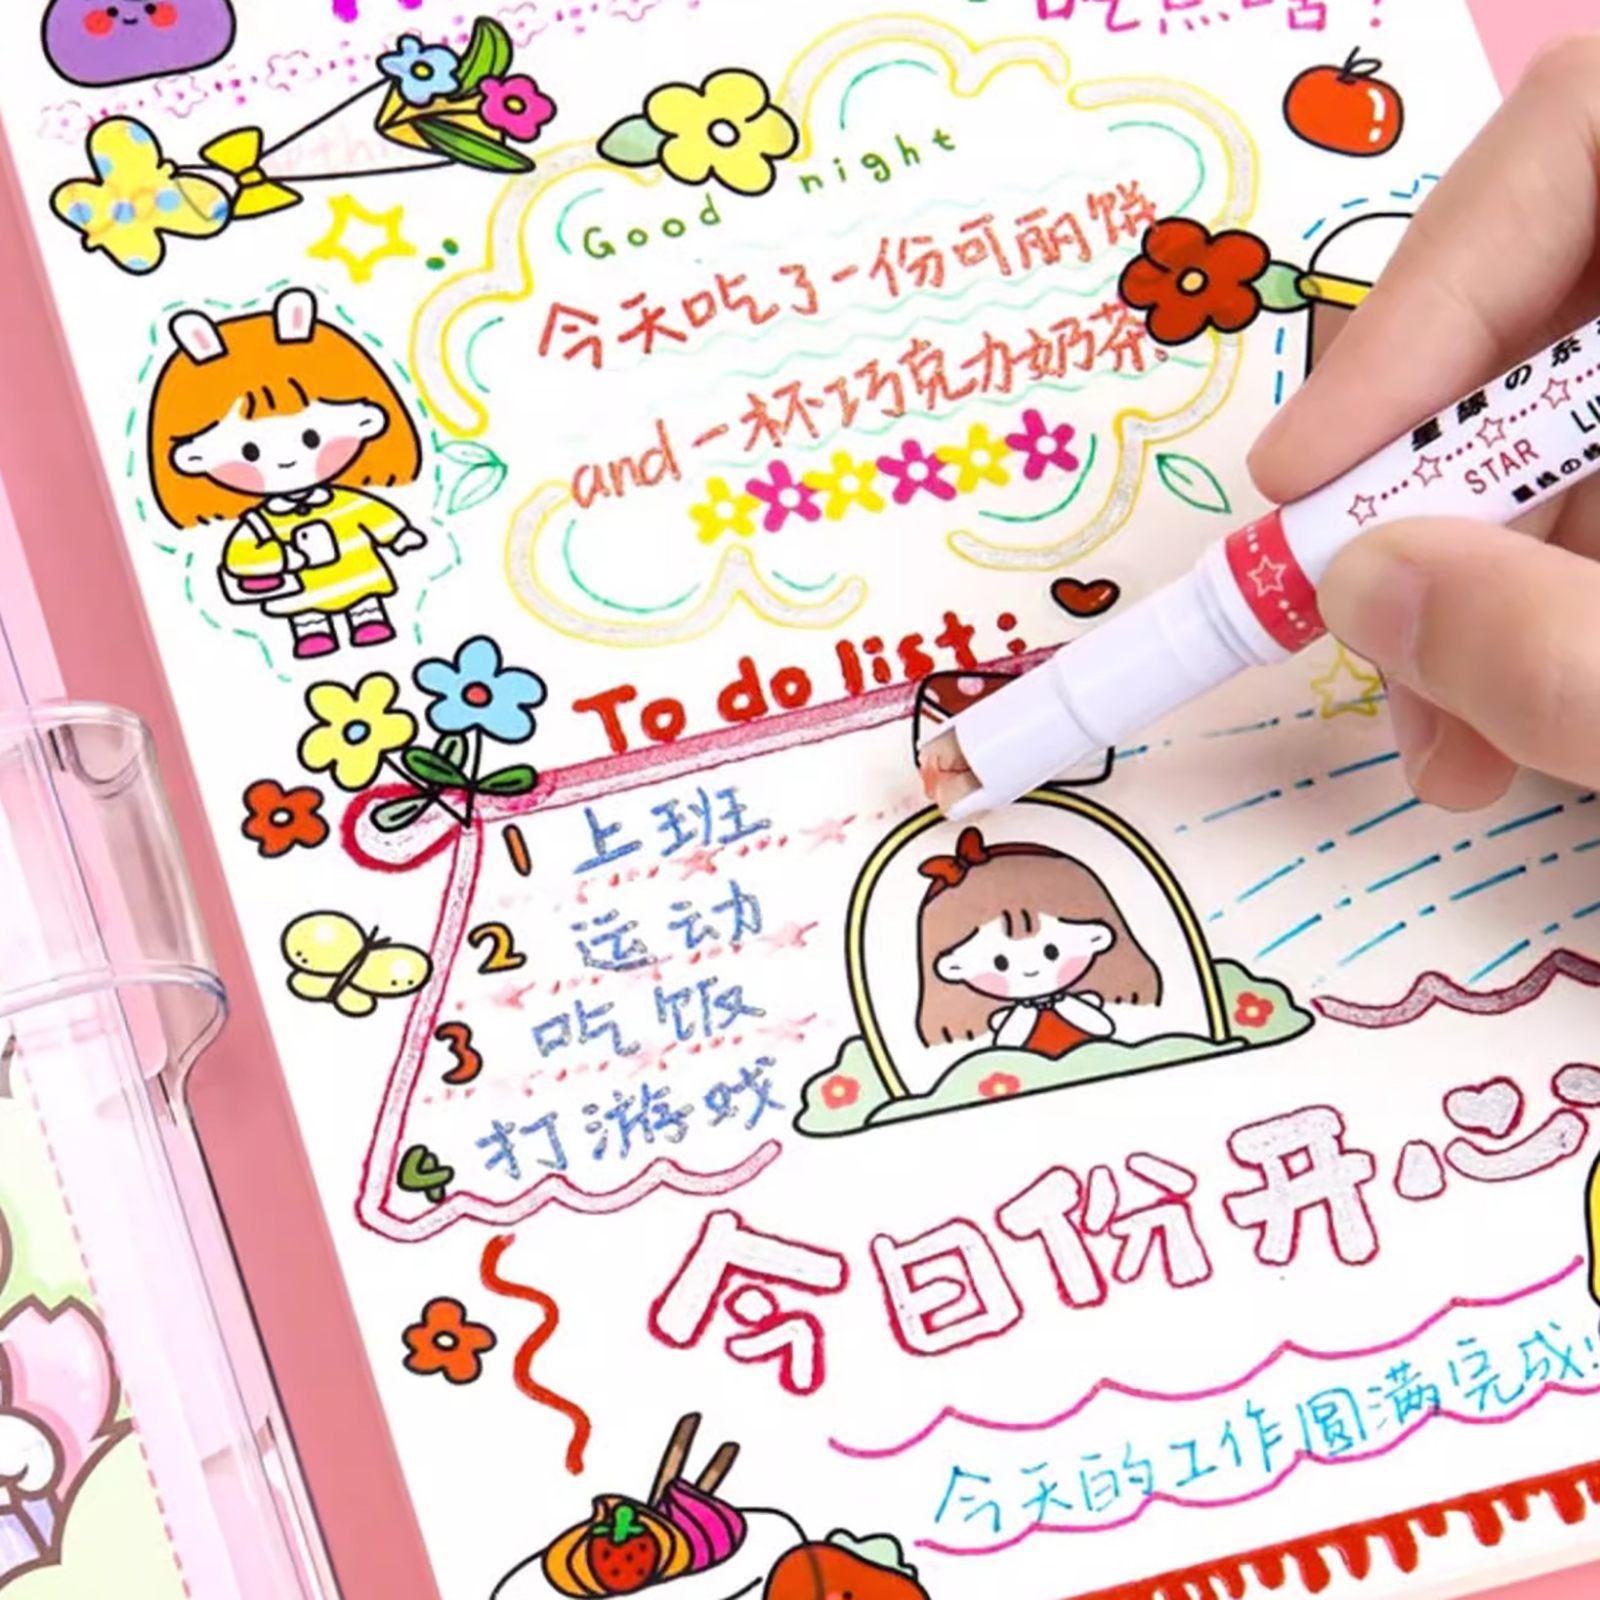 吃点啥?
Good night
今天吃了一份可丽饼
and 一杯巧克力奶茶。
To do list:
1 上班
2 运动
3 吃饭
4 打游戏
STAR
今日份开心
今天的工作圆满完成!